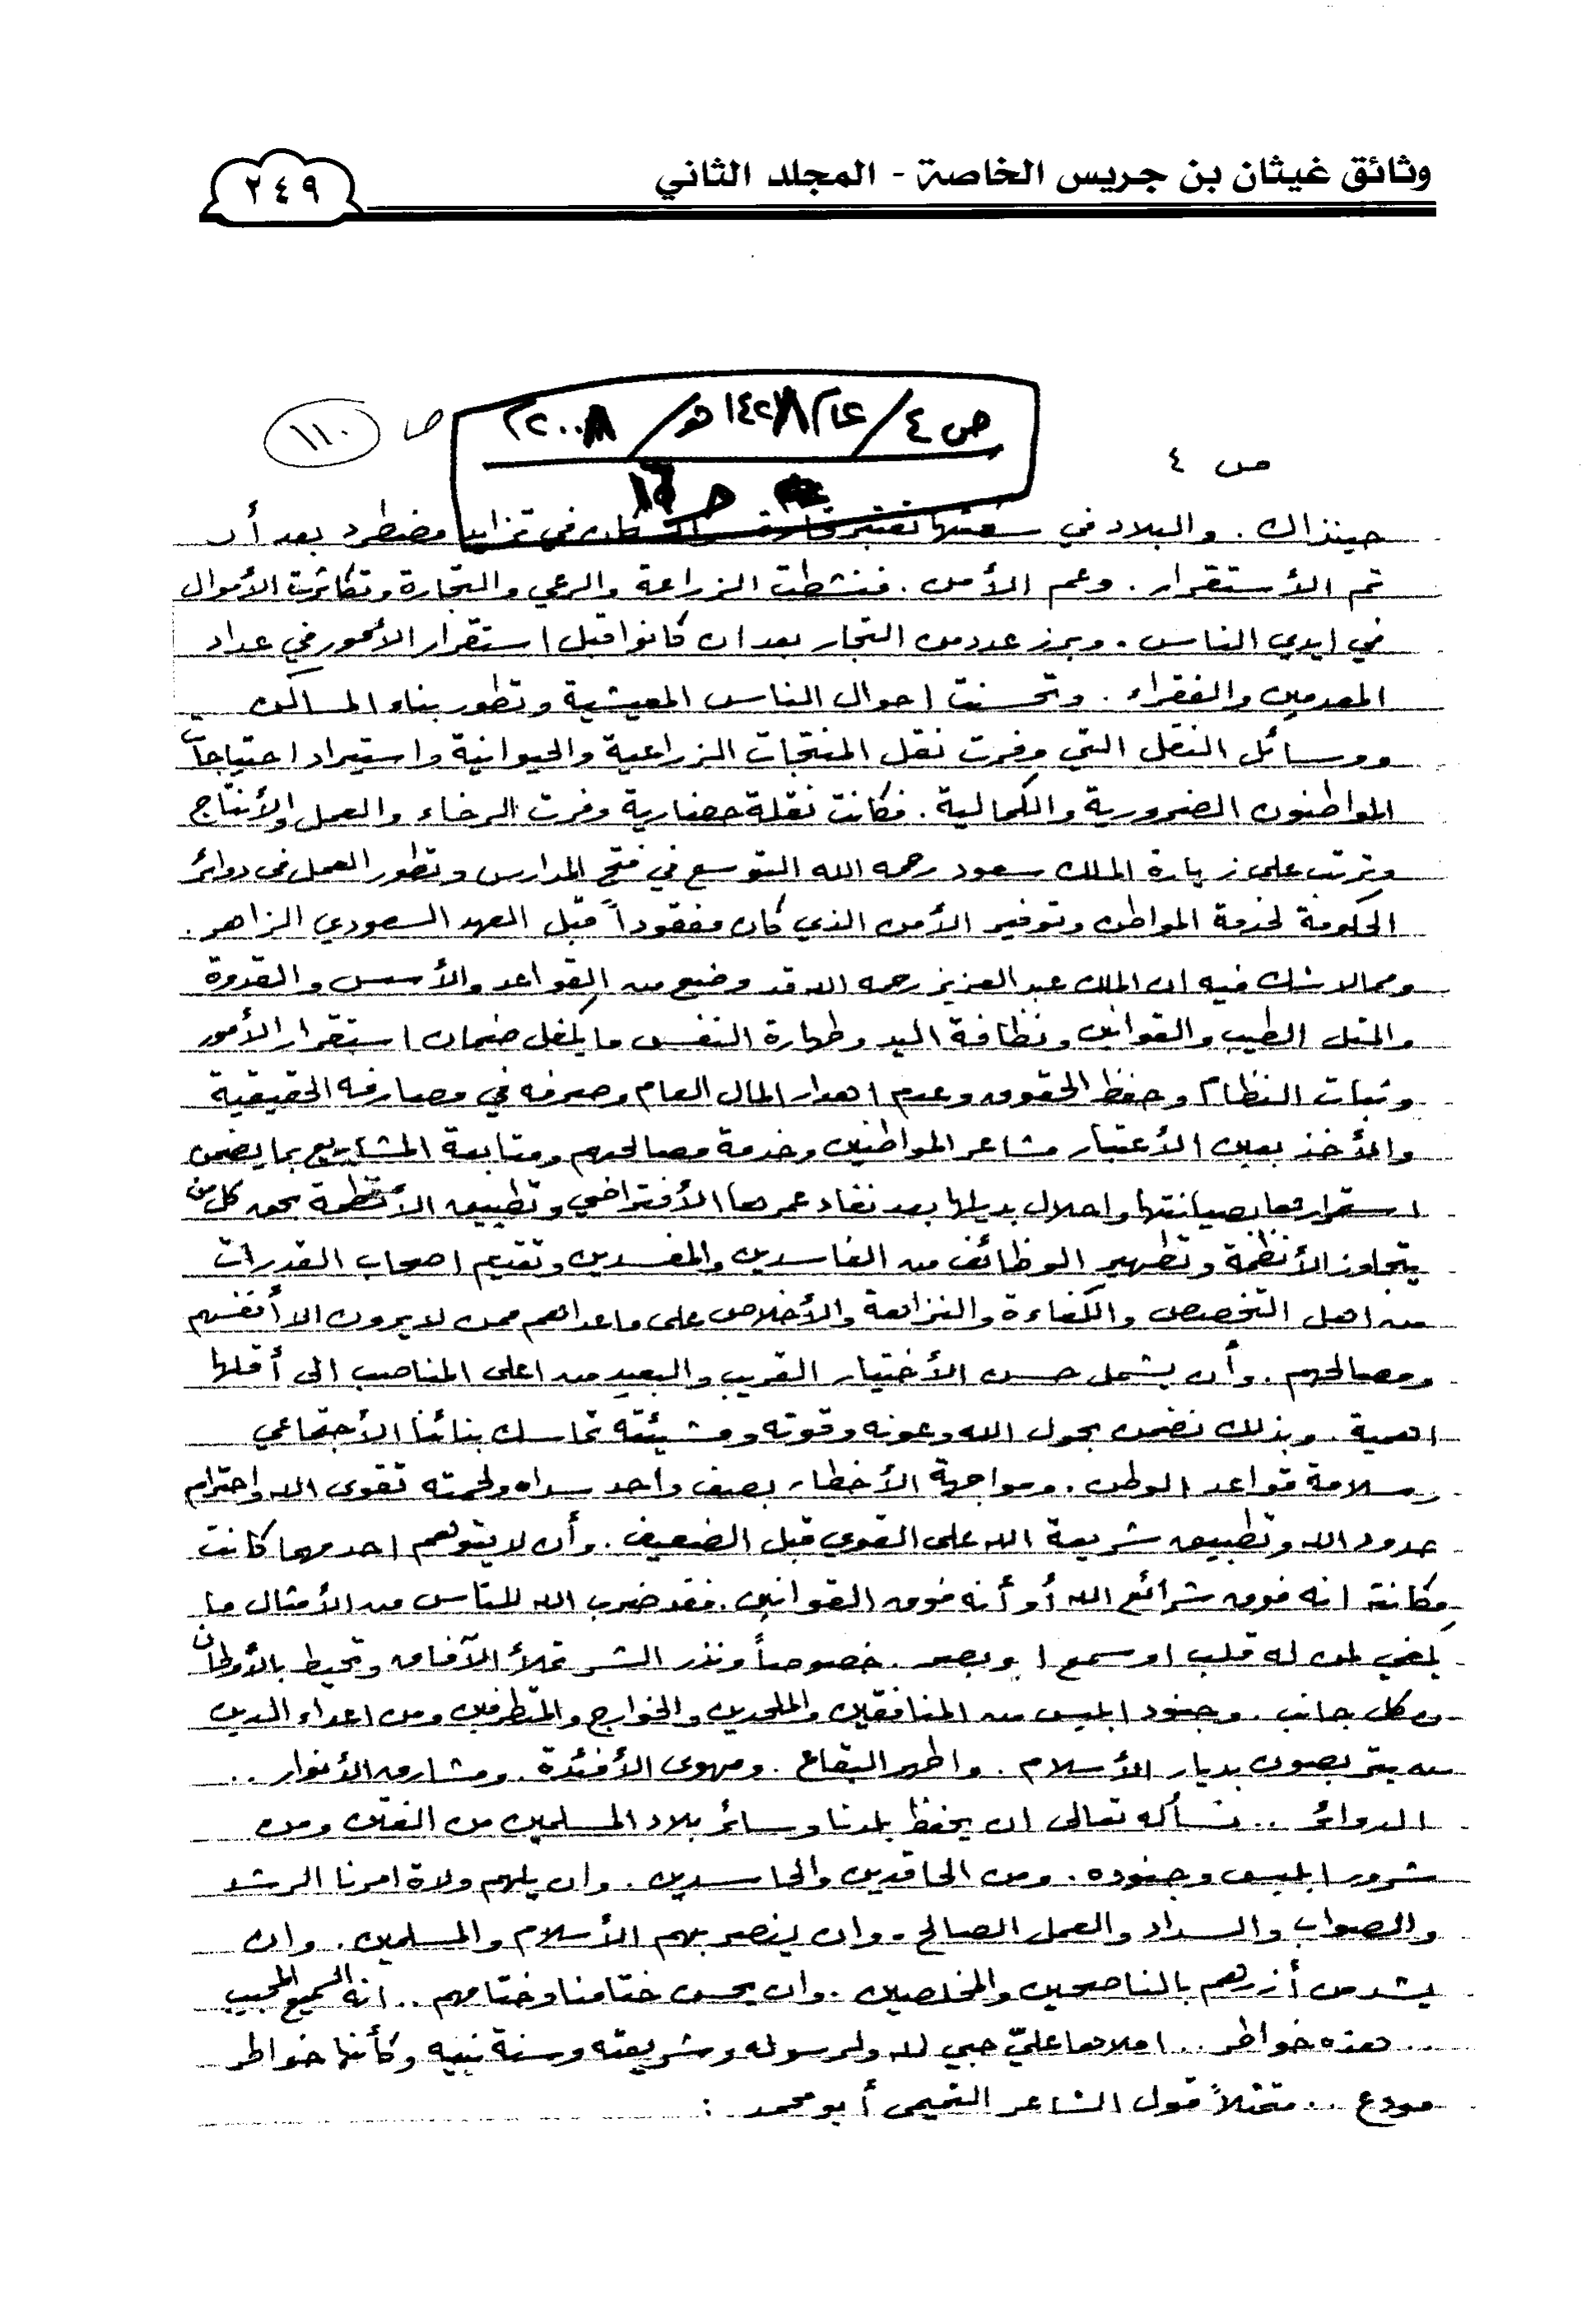 وثائق غيثان بن جريس الخاصة - المجلد الثاني
٢٤٩
ص ١١٠
ص ٤
حينذاك . والبلاد في سعتها تعتبر قارة في تزايد مضطرد بعد أن
تم الأستقرار . وعم الأمن . فنشطت الزراعة والرعي والتجارة وتكاثرت الأموال
في ايدي الناس . وبرز عدد من التجار بعد ان كانوا قبل استقرار الأمور في عداد
المعدمين والفقراء . وتحسنت احوال الناس المعيشية وتطور بناء المساكن
ووسائل النقل التي وفرت نقل المنتجات الزراعية والحيوانية واستيراد احتياجات
المواطنون الضرورية والكمالية . فكانت نقلة حضارية وفرت الرخاء والعمل والأنتاج
وترتب على زيارة الملك سعود رحمه الله التوسع في فتح المدارس وتطور العمل في دوائر
الحكومة لخدمة المواطن وتوفير الأمن الذي كان مفقوداً قبل العهد السعودي الزاهر .
ومما لا شك فيه ان الملك عبد العزيز رحمه الله قد وضع من القواعد والأسس والقدوة
والمثل الطيب والقوانين ونظافة اليد وطهارة النفس ما يكفل ضمان استقرار الأمور
وثبات النظام وحفظ الحقوق وعدم اهدار المال العام وصرفه في مصارفه الحقيقية
والأخذ بعين الأعتبار مشاعر المواطنين وخدمة مصالحهم ومتابعة المشاريع بما يضمن
استمرارها بصيانتها واحلال بديلها بعد نفاد عمرها الأفتراضي وتطبيق الأنظمة بحق كل من
يتجاوز الأنظمة وتطهير الوظائف من الفاسدين والمفسدين وتقديم اصحاب القدرات
من اهل التخصص والكفاءة والنزاهة والأخلاص على ماعداهم ممن لا يرون الا أنفسهم
ومصالحهم . وأن يشمل حسن الأختيار القريب والبعيد من اعلى المناصب الى أقلها
اهمية . وبذلك نضمن بحول الله وعونه وقوته ومشيئته تماسك بنائنا الأجتماعي
وسلامة قواعد الوطن . ومواجهة الأخطار بصف واحد سداه ولحمته تقوى الله واحترام
حدود الله وتطبيق شريعة الله على القوي قبل الضعيف . وأن لا يتوهم احد مهما كانت
مكانته انه فوق شرائع الله أو أنه فوق القوانين . فقد ضرب الله للناس من الأمثال ما
يكفي لمن له قلب او سمع او بصر . خصوصاً ونذر الشر تملأ الآفاق وتحيط بالأوطان
من كل جانب . وجنود ابليس من المنافقين والملحدين والخوارج والمتطرفين ومن اعداء الدين
من يتربصون بديار الأسلام . واطهر البقاع . ومهوى الأفئدة . ومشارق الأنوار ..
الدوائر .. نسأله تعالى ان يحفظ بلدنا وسائر بلاد المسلمين من الفتن ومن
شرور ابليس وجنوده . ومن الحاقدين والحاسدين . وان يلهم ولاة امرنا الرشد
والصواب والسداد والعمل الصالح . وان ينصر بهم الأسلام والمسلمين . وان
يشد من أزرهم بالناصحين والمخلصين . وان يحسن ختامنا وختامهم .. انه السميع المجيب
.. هذه خواطر .. املاها عليّ حبي لله ولرسوله وشريعته وسنة نبيه وكأنها خواطر
مودع .. متمثلاً قول الشاعر التميمي أبو محمد :